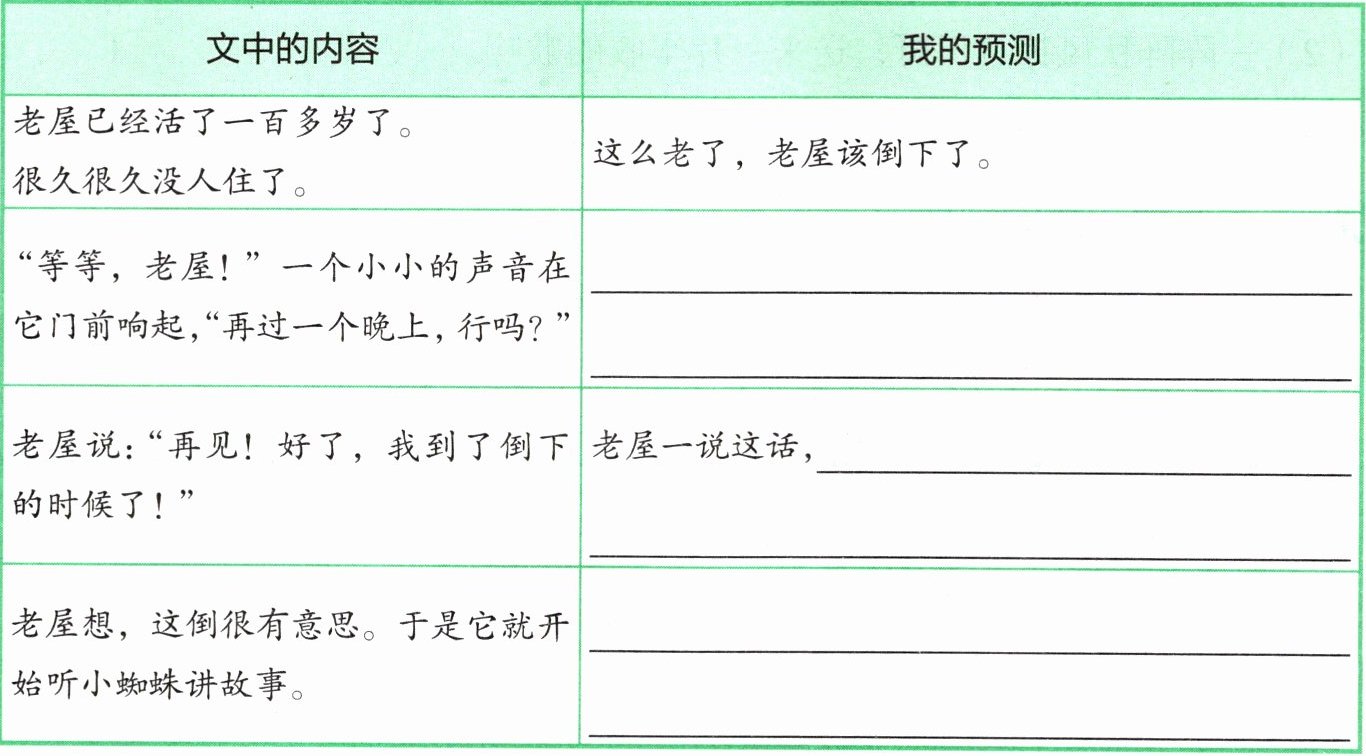 文中的内容
我的预测
老屋已经活了一百多岁了。
很久很久没人住了。
这么老了，老屋该倒下了。
“等等，老屋！”一个小小的声音在
它门前响起，“再过一个晚上，行吗？”
老屋说：“再见！好了，我到了倒下
的时候了！”
老屋一说这话，
老屋想，这倒很有意思。于是它就开
始听小蜘蛛讲故事。